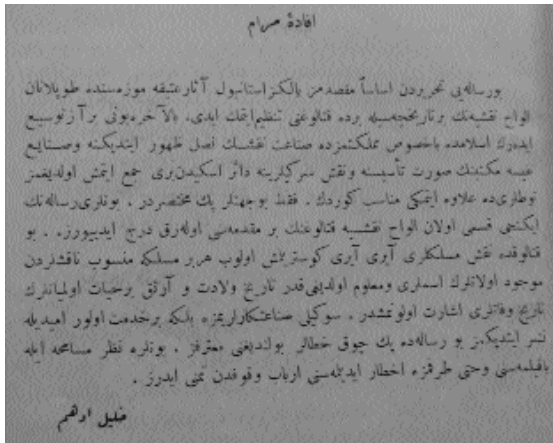 افادهٔ مرام
بو رساله‌یی تحریردن اساساً مقصدمز یالکز استانبول آثار عتیقه موزه‌سنده طوپلانان
الواح نقشیه‌نك بر تاریخچه‌سیله برده قتالوغنی تنظیم ایتمك ایدی. بالآخره بونی بر آز توسیع
ایده‌رك اسلامده باخصوص مملكتمزده صناعت نقشك نصل ظهور ایتدیكنه و صنایع
مكتبنك صورت تأسیسنه و نقش سركیلرینه دائر اسكیدن بری جمع ایتمش اولدیغمز
نوطلری ده علاوه ایتمكی مناسب كوردك. فقط بو جهتلر پك مختصردر. بونلری رساله‌نك
ایكنجی قسمی اولان الواح نقشیه قتالوغنك بر مقدمه‌سی اوله‌رق درج ایدییورز. بو
قتالوقده نقش مسلكلری آیری آیری كوسترلمش اولوب هر بر مسلكه منسوب ناقشلردن
موجود اولانلرك اسملری و معلوم اولدیغی قدر تاریخ ولادت و آرتق برحیات اولمیانلرك
تاریخ وفاتلری اشارت اولونمشدر. سوكیلی صناعتكارلریمزه بلكه بر خدمت اولور امیدیله
نشر ایتدیكمز بو رساله‌ده پك چوق خطالر بولندیغنی معترفز. بونلره نظر مسامحه ایله
باقیلمه‌سنی و حتی طرفمزه اخطار ایدیلمه‌سنی ارباب وقوفدن تمنی ایدرز.
خلیل ادهم